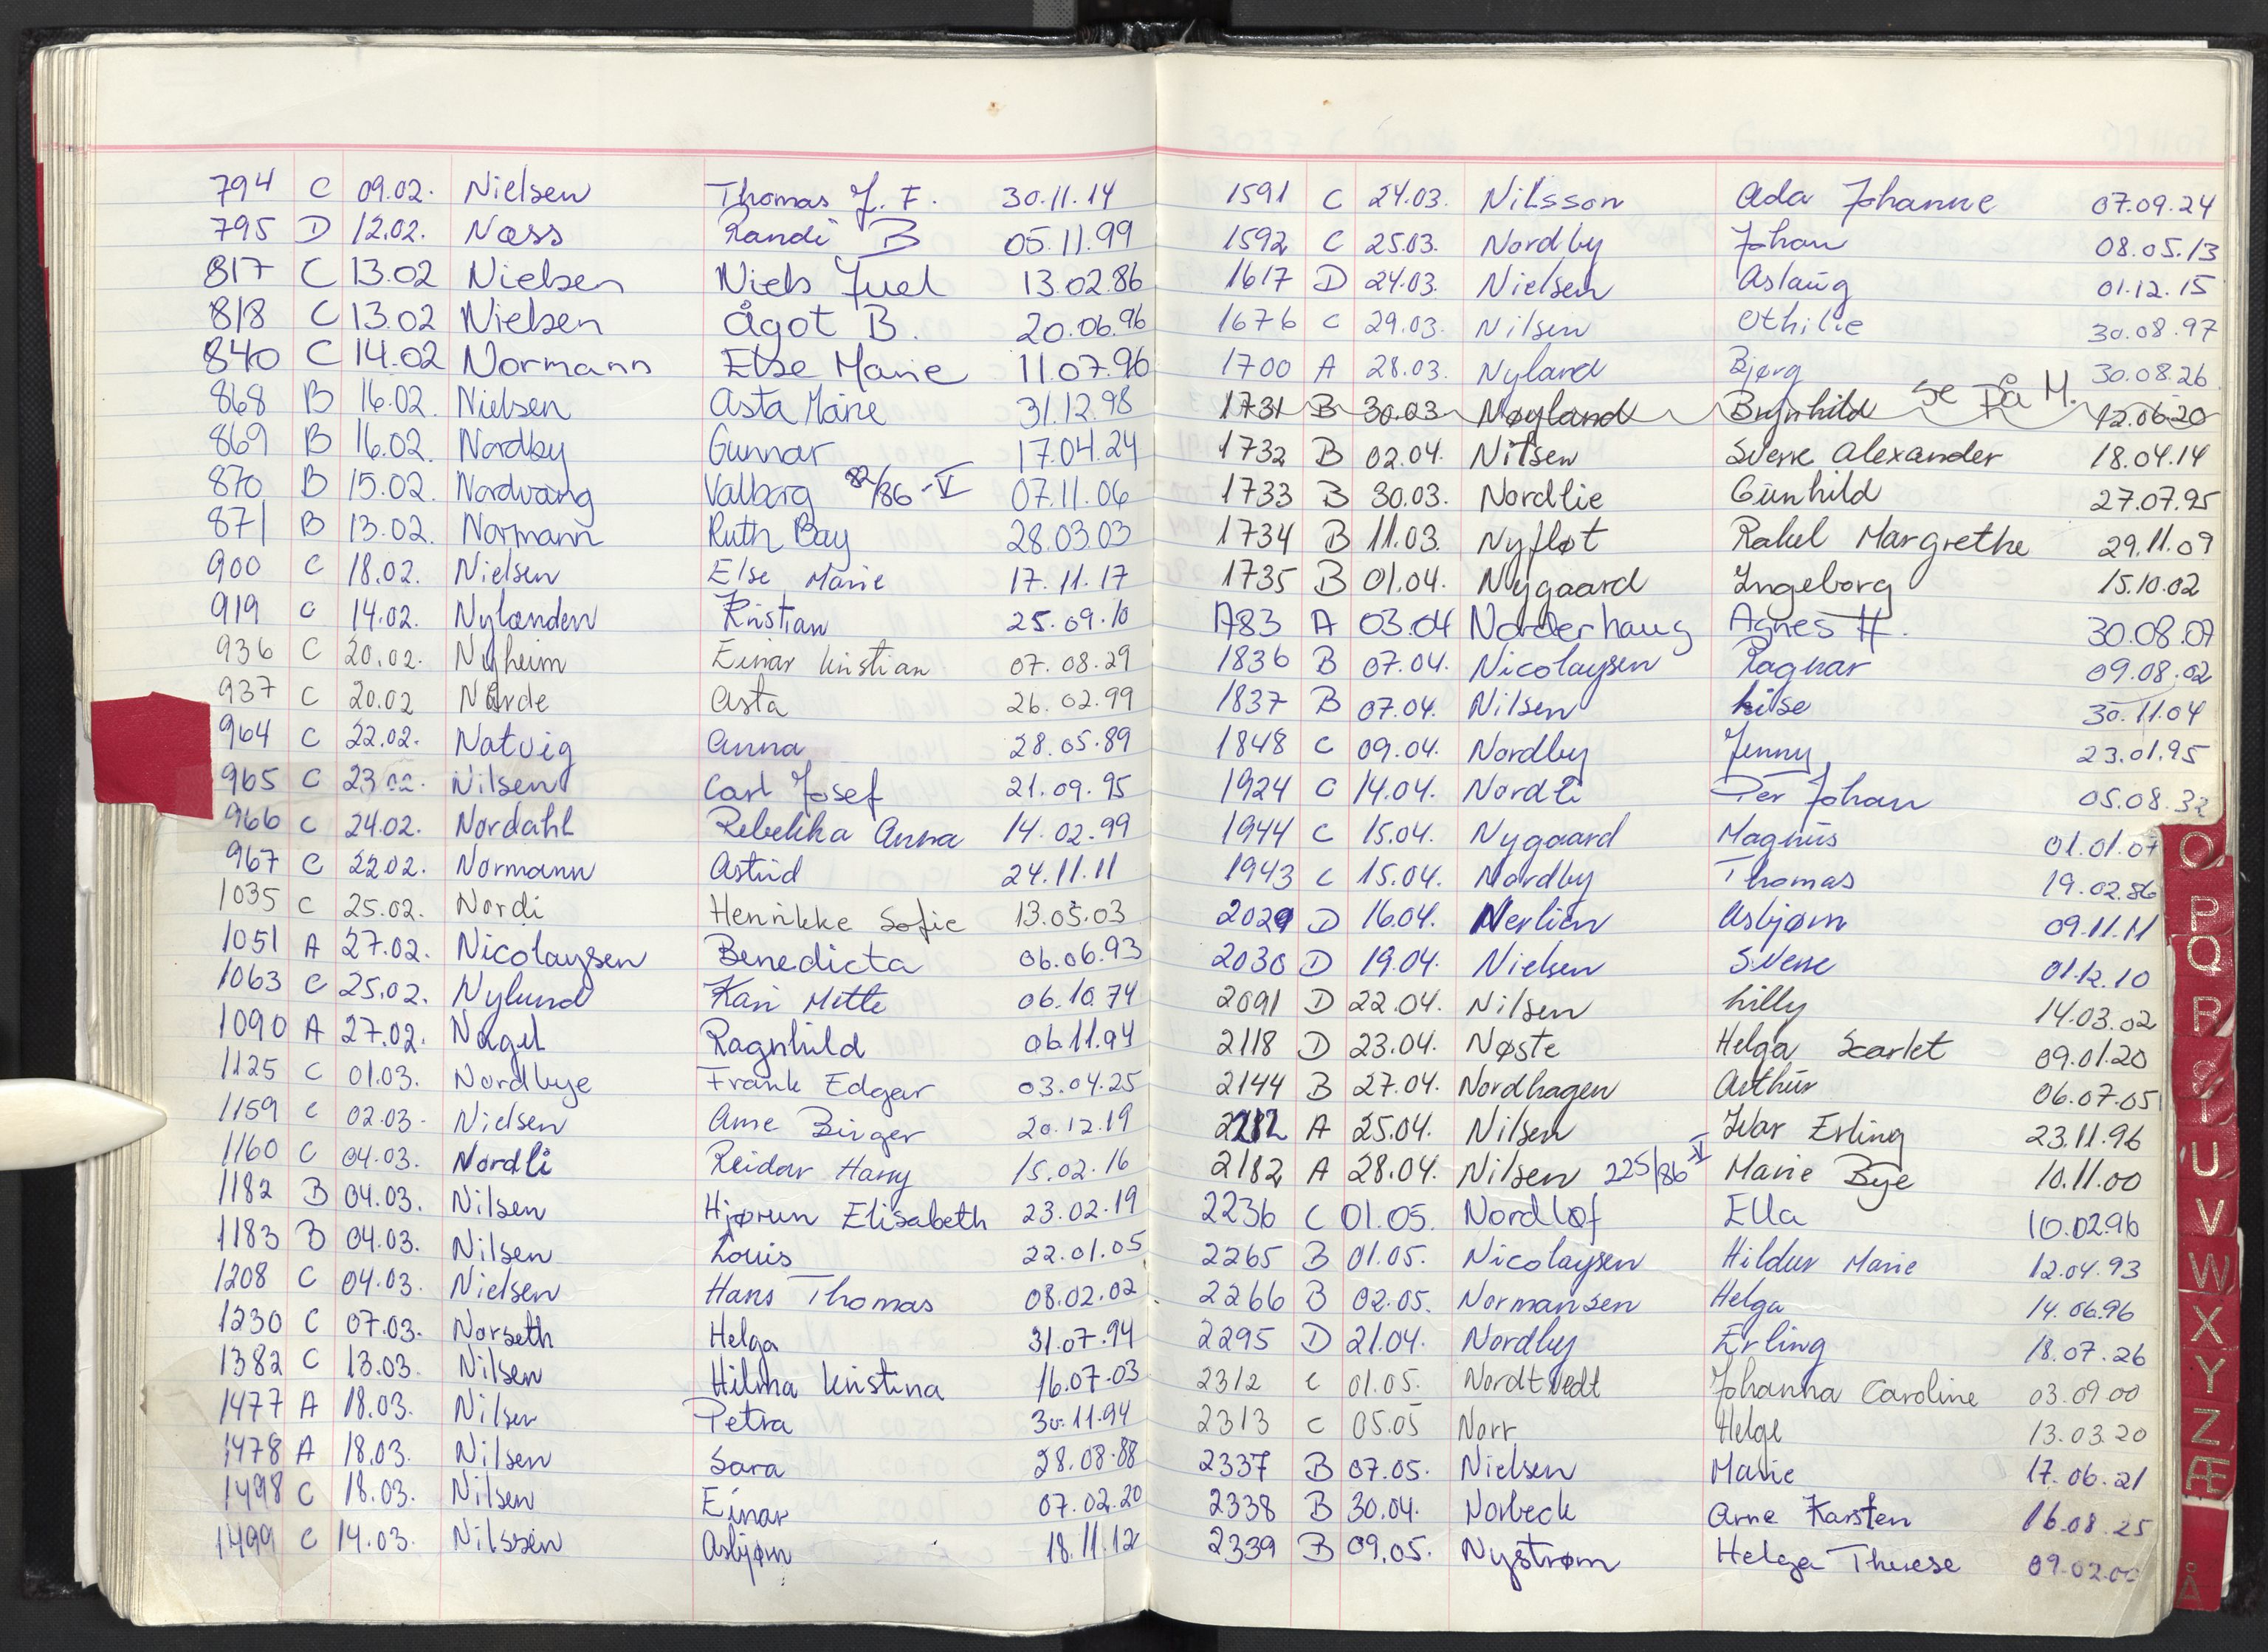 794 C 09.02. Nielsen Thomas J. F. 30.11.14
795 D 12.02. Næss Randi B 05.11.99
817 C 13.02 Nielsen Niels Juel 13.02.86
818 C 13.02 Nielsen Ågot B. 20.06.96
840 C 14.02 Normann Else Marie 11.07.96
868 B 16.02. Nielsen Asta Marie 31.12.98
869 B 16.02. Nordby Gunnar 17.04.24
870 B 15.02. Nordvang Valborg 82/86-V 07.11.06
871 B 13.02. Normann Ruth Bay 28.03.03
900 C 18.02. Nielsen Else Marie 17.11.17
919 C 14.02. Nylænden Kristian 25.09.10
936 C 20.02. Nyheim Einar Kristian 07.08.29
937 C 20.02 Narde Asta 26.02.99
964 C 22.02. Natvig Anna 28.05.89
965 C 23.02. Nilsen Carl Josef 21.09.95
966 C 24.02. Nordahl Rebekka Anna 14.02.99
967 C 22.02. Normann Astrid 24.11.11
1035 C 25.02. Nordi Henrikke Sofie 13.05.03
1051 A 27.02. Nicolaysen Benedicta 06.06.93
1063 C 25.02. Nylund Kari Mette 06.10.74
1090 A 27.02. Nagel Ragnhild 06.11.94
1125 C 01.03. Nordbye Frank Edgar 03.04.25
1159 C 02.03. Nielsen Arne Birger 20.12.19
1160 C 04.03. Nordli Reidar Harry 15.02.16
1182 B 04.03. Nilsen Hjørun Elisabeth 23.02.19
1183 B 04.03. Nilsen Louis 22.01.05
1208 C 04.03. Nielsen Hans Thomas 08.02.02
1230 C 07.03. Norseth Helga 31.07.94
1382 C 13.03. Nilsen Hilma Kristina 16.07.03
1477 A 18.03. Nilsen Petra 30.11.94
1478 A 18.03. Nilsen Sara 28.08.88
1498 C 18.03. Nilsen Einar 07.02.20
1499 C 14.03. Nilssen Asbjørn 18.11.12
1591 C 24.03. Nilsson Ada Johanne 07.09.24
1592 C 25.03. Nordby Johan 08.05.13
1617 D 24.03. Nielsen Aslaug 01.12.15
1676 C 29.03. Nilsen Othilie 30.08.97
1700 A 28.03. Nyland Bjørg 30.08.26
1731 B 30.03 Nøyland Brynhild se på M. 12.06.20
1732 B 02.04. Nilsen Sverre Alexander 18.04.14
1733 B 30.03. Nordlie Gunhild 27.07.95
1734 B 11.03. Nyfløt Rakel Margrethe 29.11.09
1735 B 01.04. Nygaard Ingeborg 15.10.02
1783 A 03.04 Norderhaug Agnes H. 30.08.07
1836 B 07.04. Nicolaysen Ragnar 09.08.02
1837 B 07.04. Nilsen Lilse 30.11.04
1848 C 09.04. Nordby Jenny 23.01.95
1924 C 14.04. Nordli Per Johan 05.08.32
1944 C 15.04. Nygaard Magnus 01.01.07
1943 C 15.04. Nordby Thomas 19.02.86
2029 D 16.04. Nerlien Asbjørn 09.11.11
2030 D 19.04. Nielsen Sverre 01.12.10
2091 D 22.04. Nilsen Lilly 14.03.02
2118 D 23.04. Nøste Helga Scarlet 09.01.20
2144 B 27.04. Nordhagen Arthur 06.07.05
A 25.04. Nilsen Ivar Erling 23.11.96
2182 A 28.04. Nilsen 225/86 V Marie Bye 10.11.00
2236 C 01.05. Nordløf Ella 10.02.96
2265 B 01.05. Nicolaysen Hildur Marie 12.04.93
2266 B 02.05. Normansen Helga 14.06.96
2295 D 21.04. Nordby Erling 18.07.26
2312 C 01.05. Nordtvedt Johanna Caroline 03.09.00
2313 C 05.05 Norr Helge 13.03.20
2337 B 07.05. Nielsen Marie 17.06.21
2338 B 30.04. Norbeck Arne Karsten 16.08.25
2339 B 09.05. Nystrøm Helga Therese 09.02.00
O
P
Q
R
S
T
U
V
W
X
Y
Z
Æ
Å